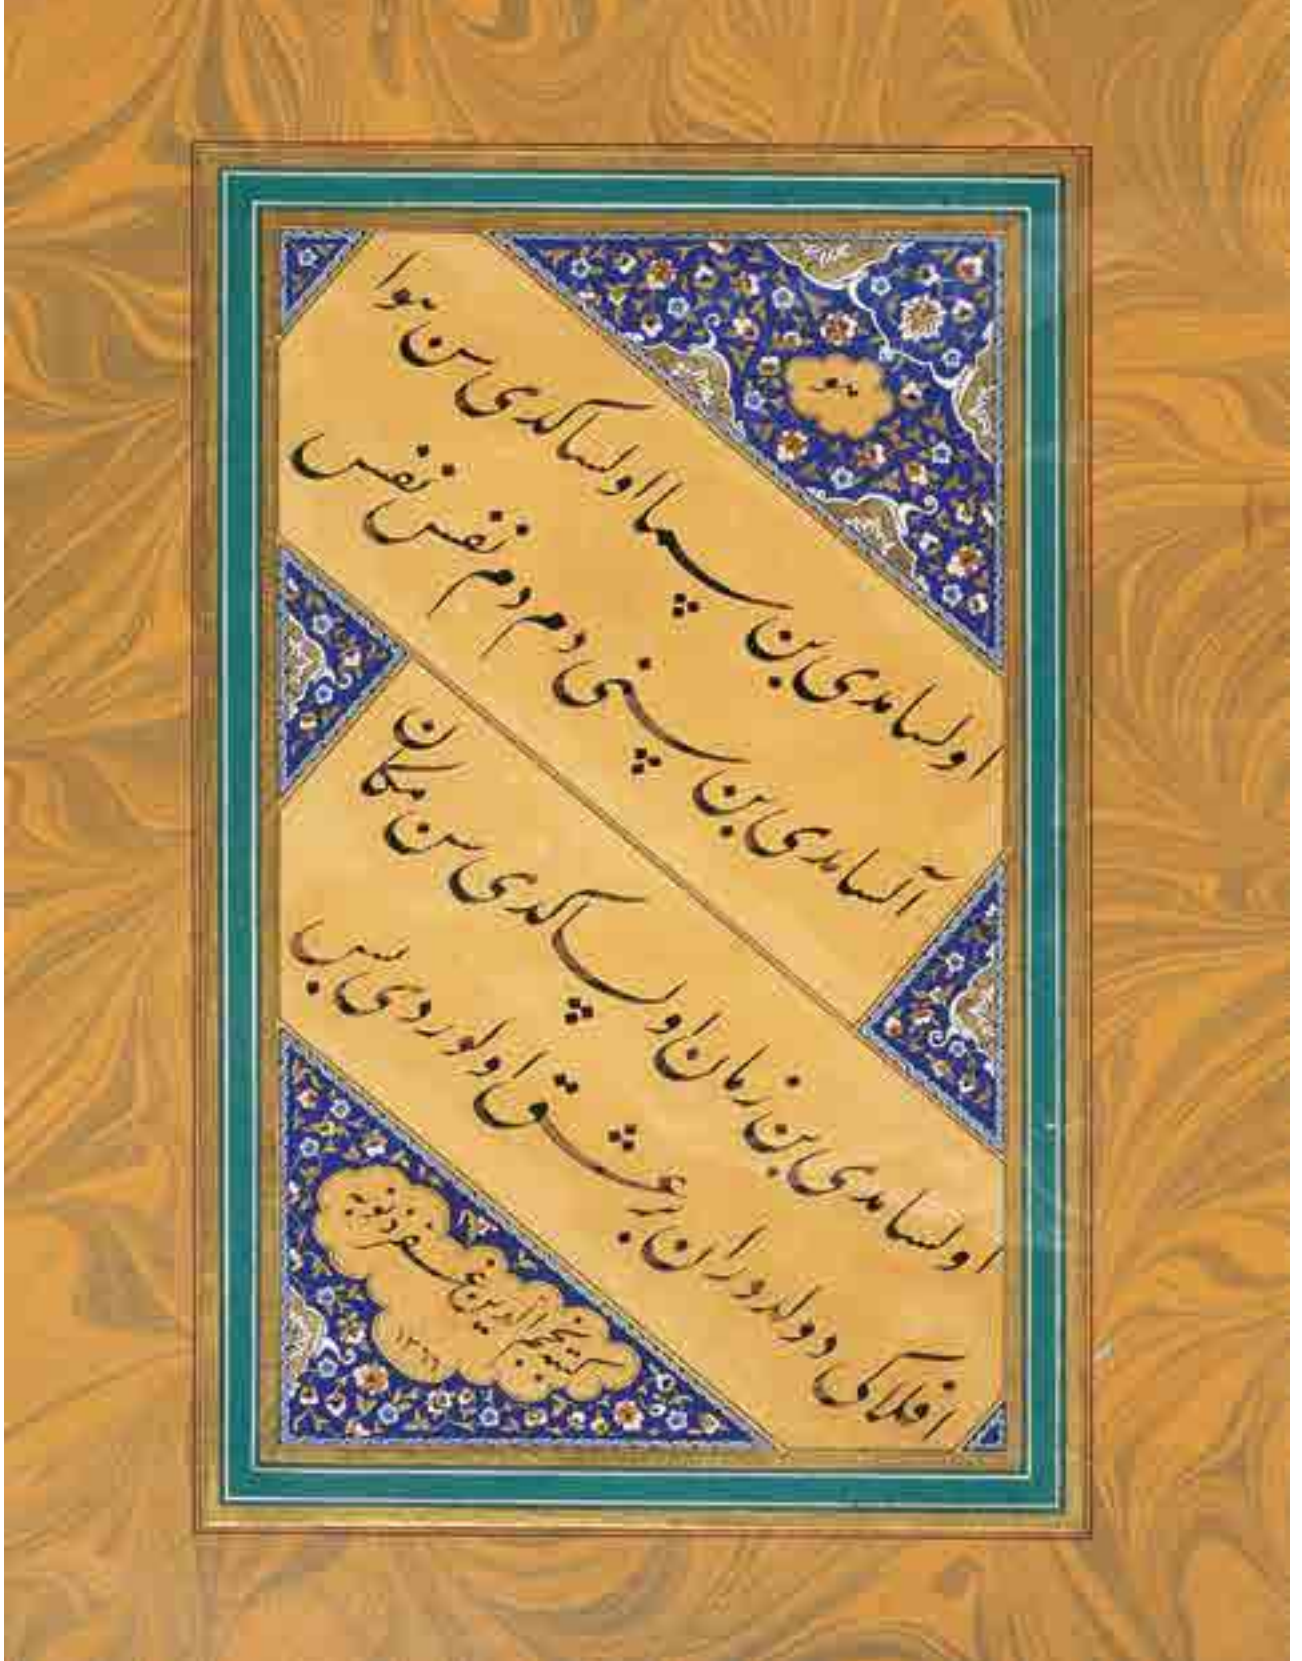 ياهو
اولسامدی بن سما اولساکدی سن هوا
آلسامدی بن سنی دم دم نفس نفس
اولسامدی بن زمان اولساکدی سن مکان
افلاکی دولدوران بر عشق اولوردی بس
کتبه نجم الدین غفر ذنوبه
١٣٦٦